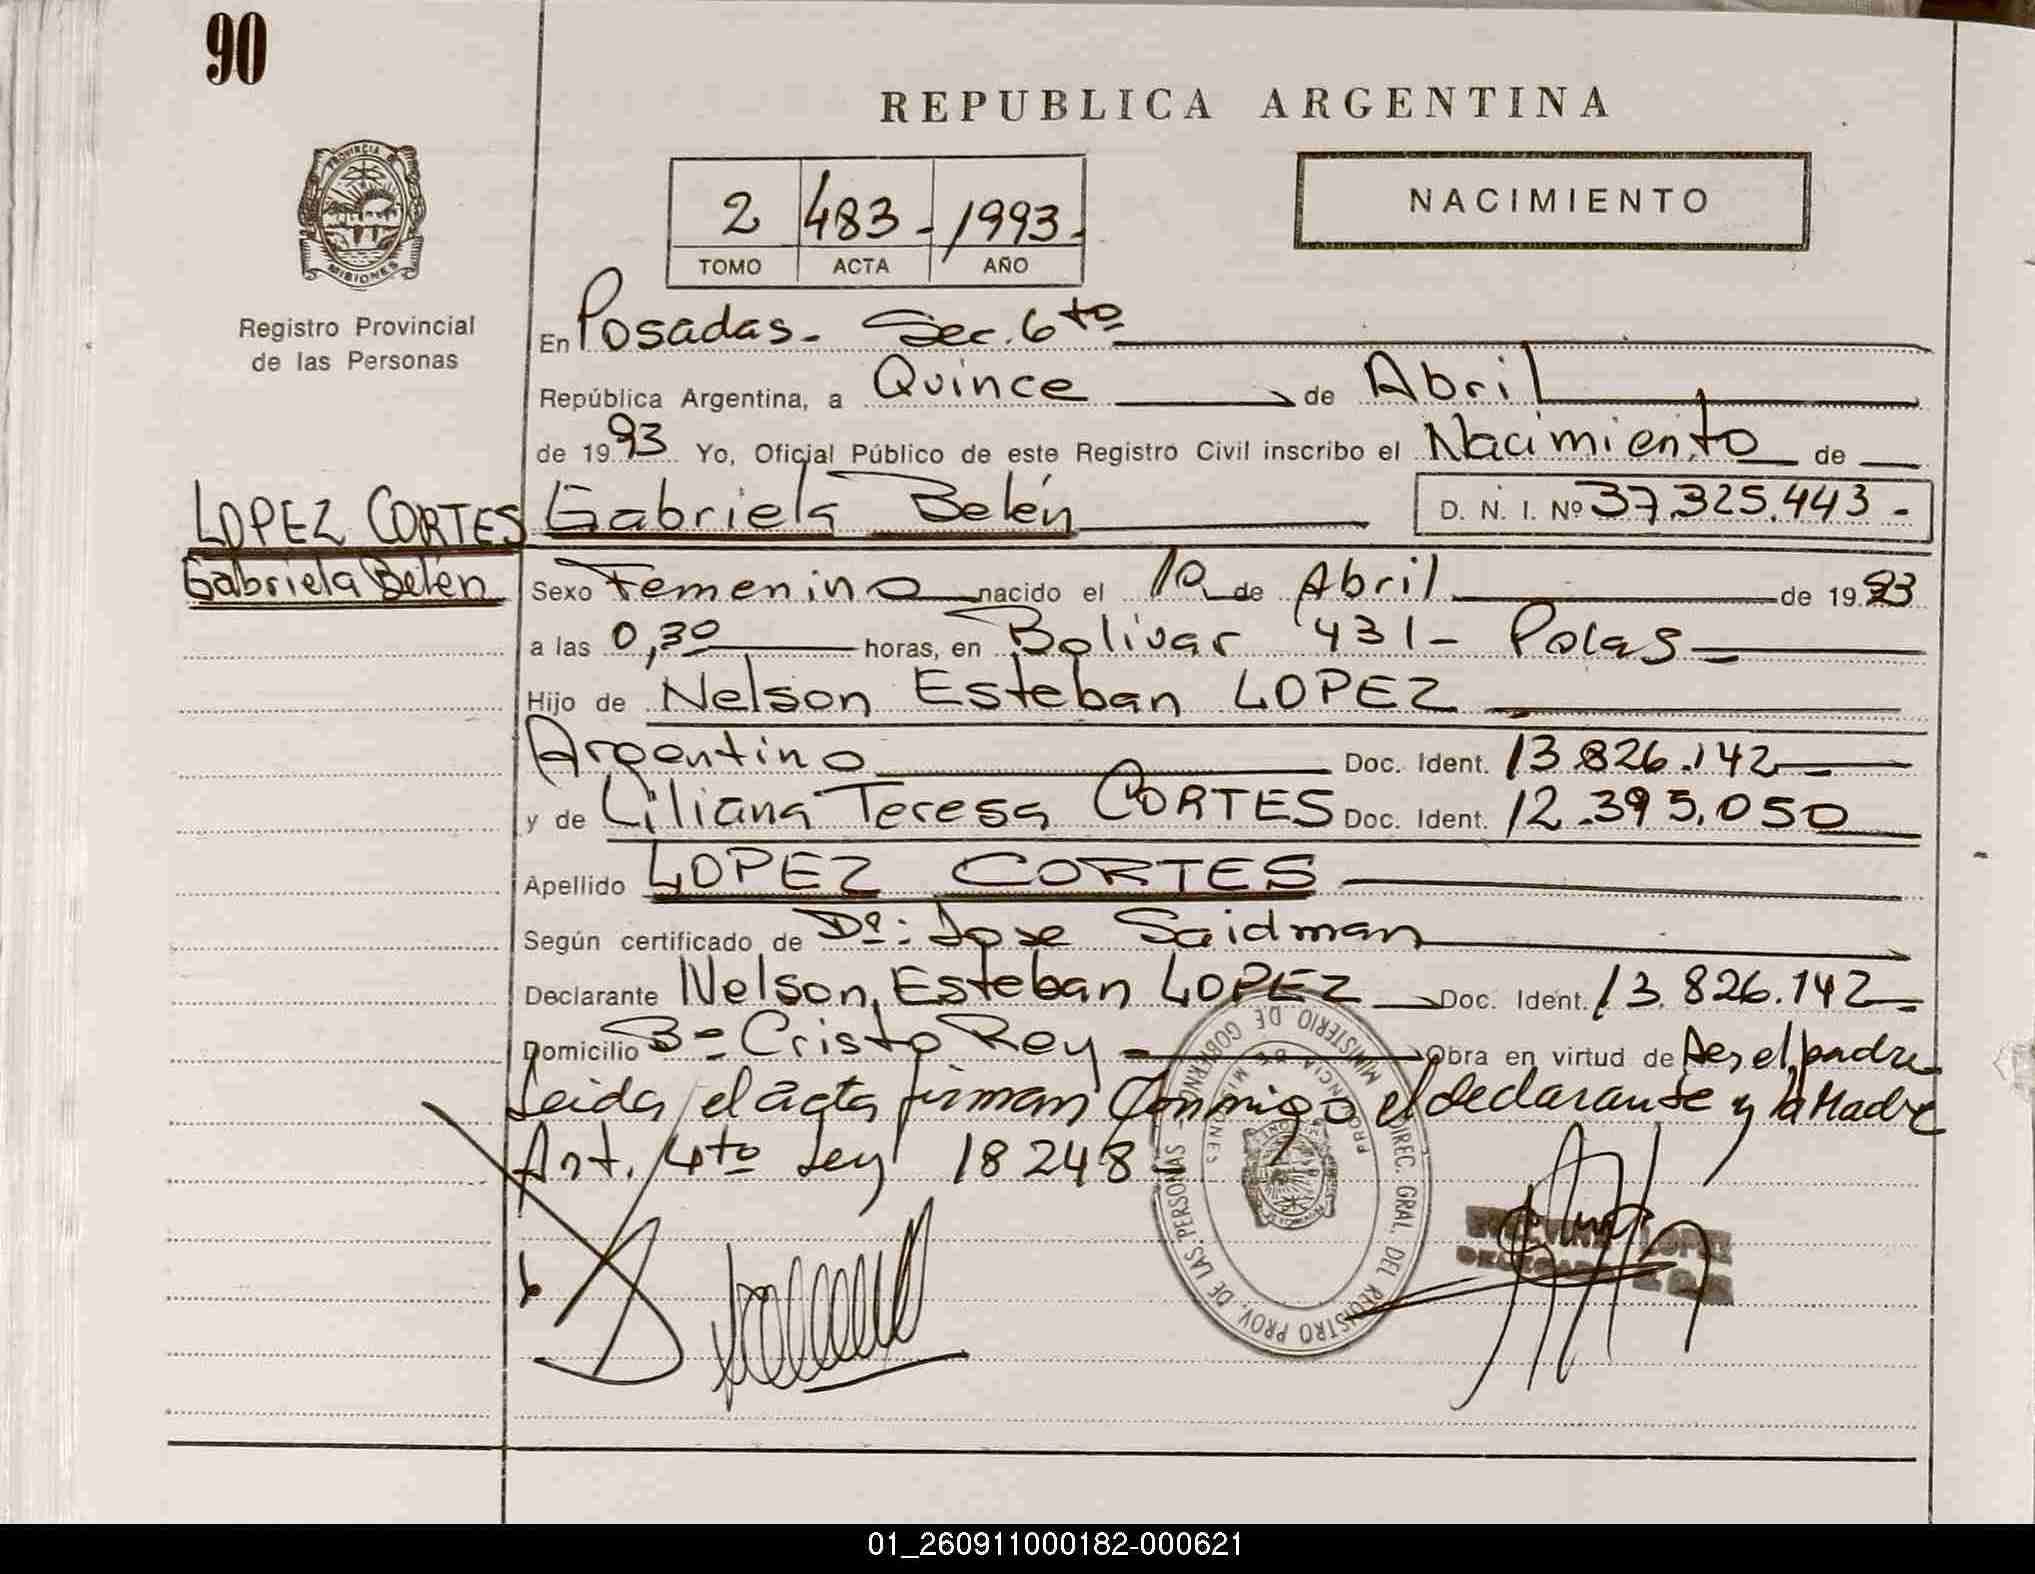 90
REPUBLICA ARGENTINA
PROVINCIA DE
MISIONES
Registro Provincial
de las Personas
2 483- 1993-
TOMO ACTA AÑO
NACIMIENTO
En Posadas- Sec. 6to
República Argentina, a Quince de Abril
de 1993 Yo, Oficial Público de este Registro Civil inscribo el Nacimiento de
LOPEZ CORTES Gabriela Belén D. N. I. Nº 37.325.443-
Gabriela Belén
Sexo Femenino nacido el 10 de Abril de 1993
a las 0,30 horas, en Bolivar 431- Pdas
Hijo de Nelson Esteban LOPEZ
Argentino Doc. Ident. 13.826.142
y de Liliana Teresa CORTES Doc. Ident. 12.395.050
Apellido LOPEZ CORTES
Según certificado de Dr: Jose Saidman
Declarante Nelson Esteban LOPEZ Doc. Ident. 13.826.142
Domicilio Bº Cristo Rey - Obra en virtud de ser el padre
Leida el acta firman conmigo el declarante y la Madre
Art. 4to Ley 18248-
MINISTERIO DE GOBIERNO - DIREC. GRAL. DEL REGISTRO PROV. DE LAS PERSONAS
PROVINCIA DE MISIONES
LOPEZ
01_260911000182-000621